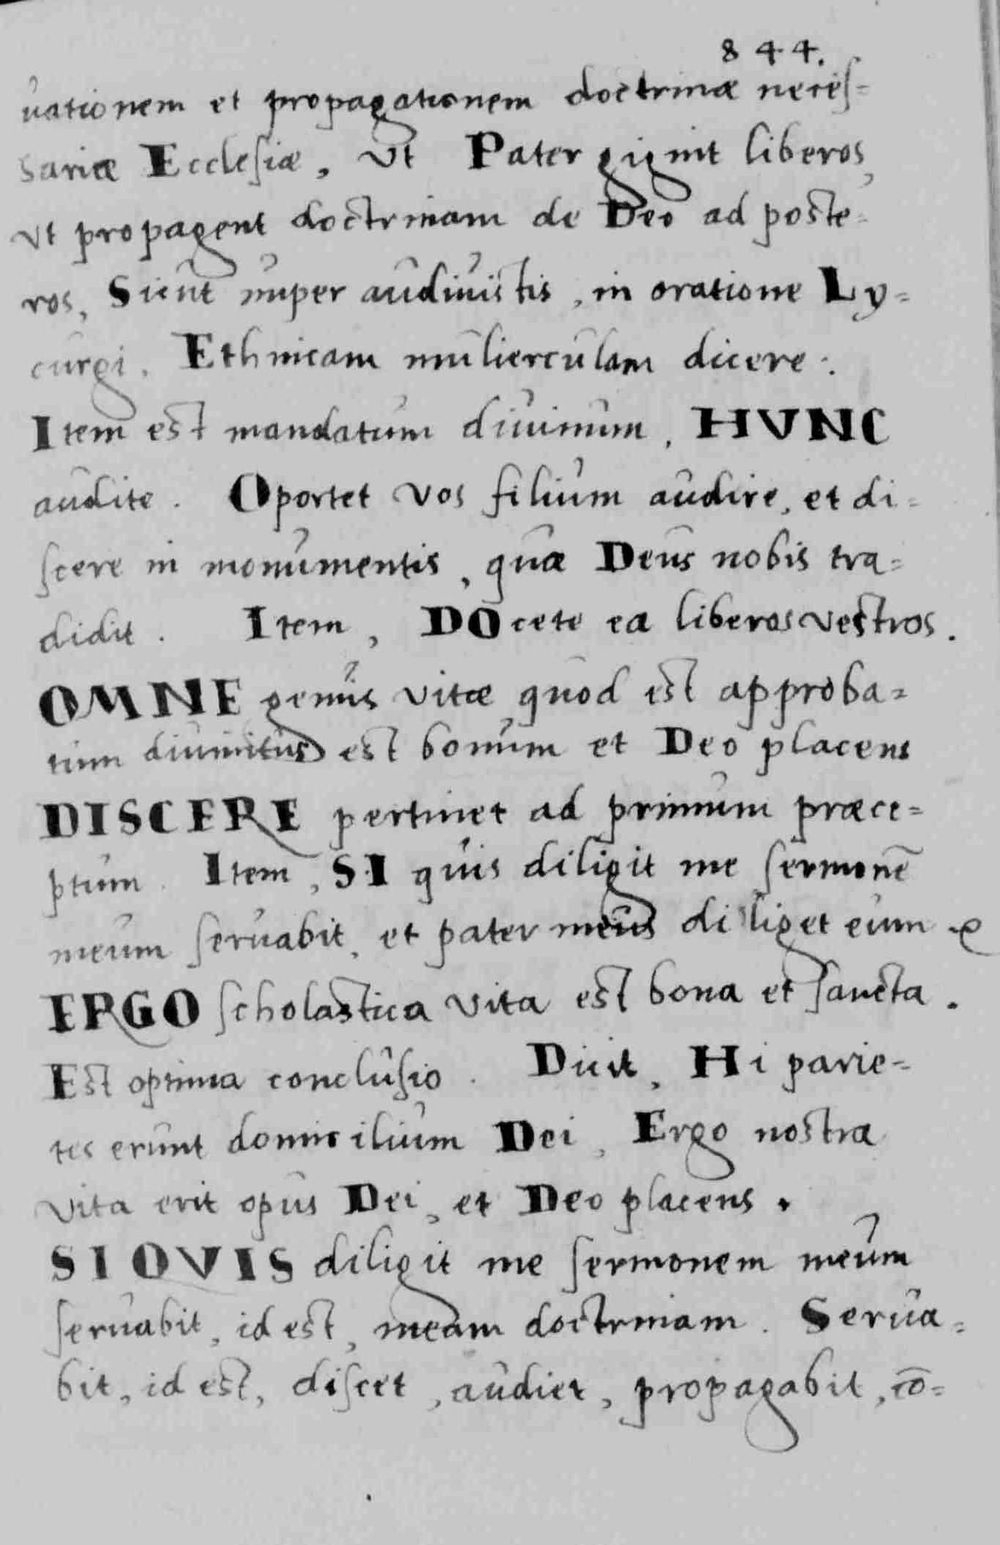 844.
uationem et propagationem doctrinæ neces-
sariæ Ecclesiæ, Vt Pater gignit liberos,
vt propagent doctrinam de Deo ad poste-
ros, Sicut nuper audiuistis, in oratione Ly-
curgi, Ethnicam mulierculam dicere.
Item est mandatum diuinum, HVNC
audite. Oportet vos filium audire, et di-
scere in monumentis, quæ Deus nobis tra-
didit. Item, DOcete ea liberos vestros.
OMNE genus vitæ quod est approba-
tum diuinitus est bonum et Deo placens
DISCERE pertinet ad primum præce-
ptum. Item, SI quis diligit me sermonē
meum seruabit, et pater meus diliget eum
ERGO scholastica vita est bona et sancta.
Est optima conclusio. Dicit, Hi parie-
tes erunt domicilium Dei, Ergo nostra
vita erit opus Dei, et Deo placens.
SI QVIS diligit me sermonem meum
seruabit, id est, meam doctrinam. Serua-
bit, id est, discet, audiet, propagabit, cō-